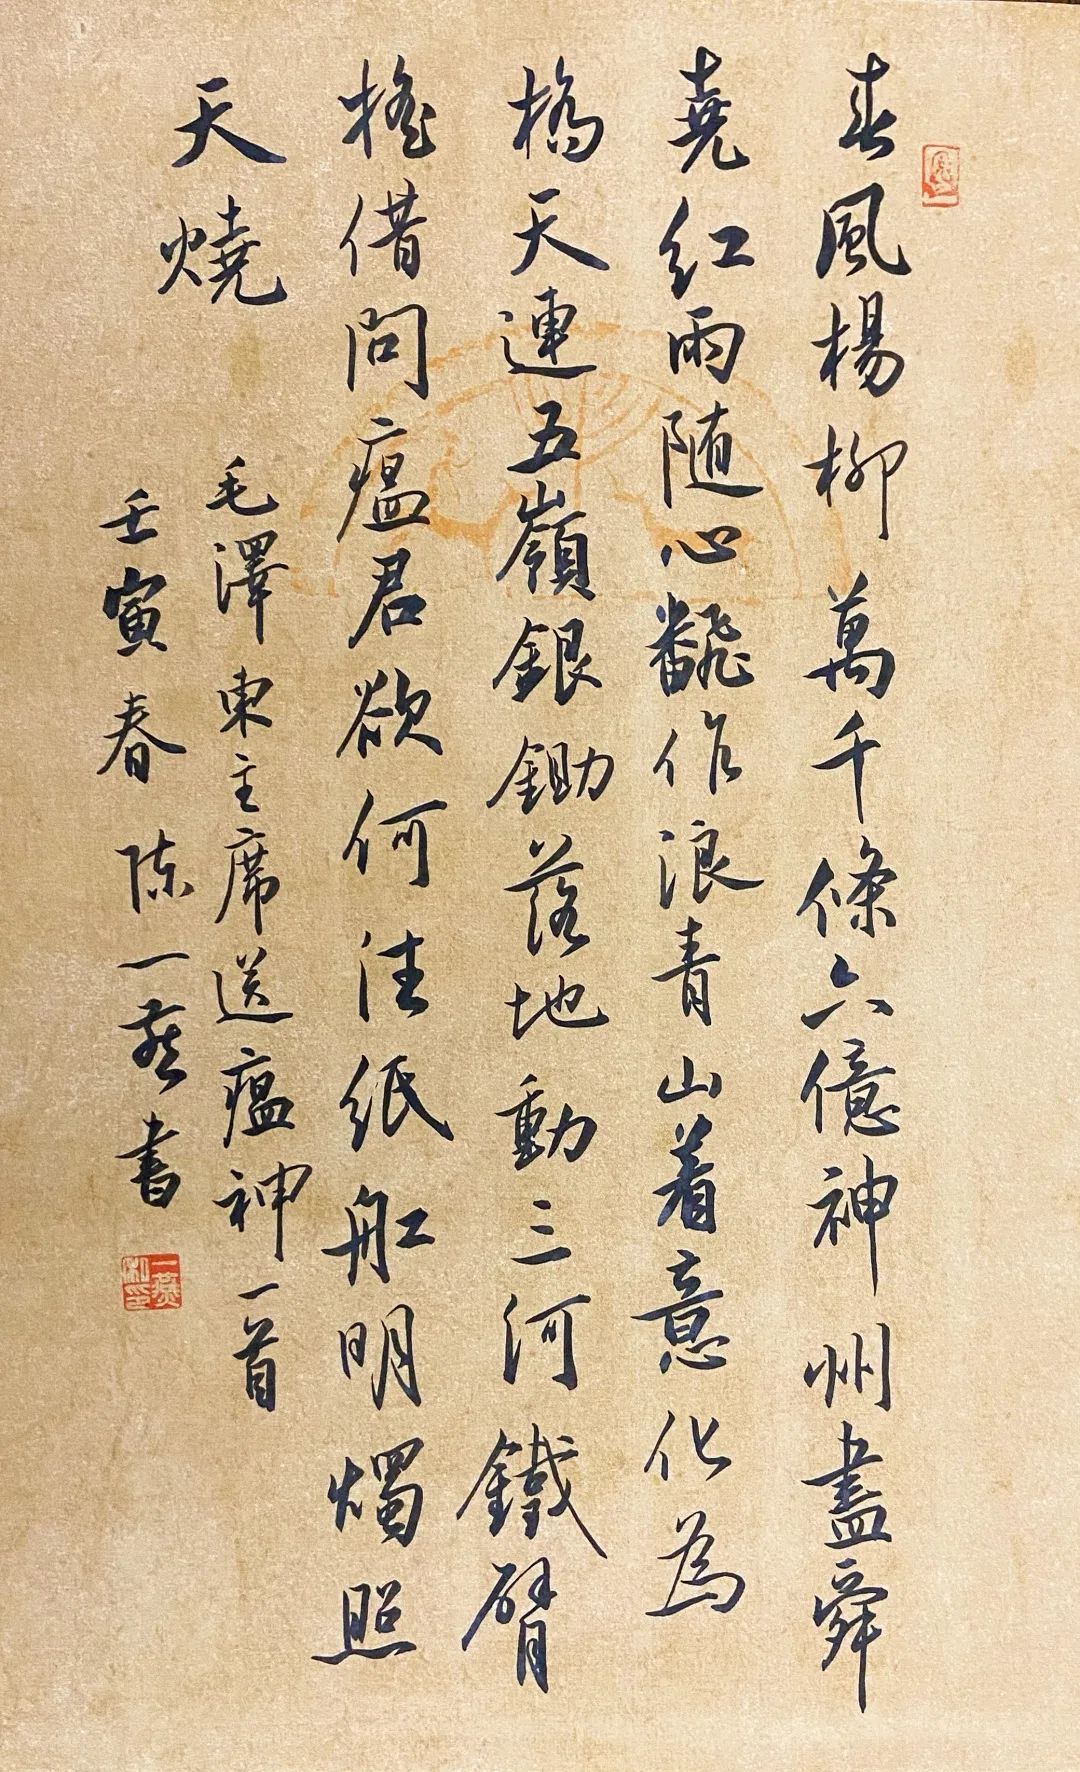 春風楊柳萬千條六億神州盡舜
堯紅雨随心飜作浪青山着意化為
橋天連五嶺銀鋤落地動三河鐵臂
搖借問瘟君欲何往紙船明燭照
天燒
毛澤東主席送瘟神一首
壬寅春陳一燕書
一燕私印